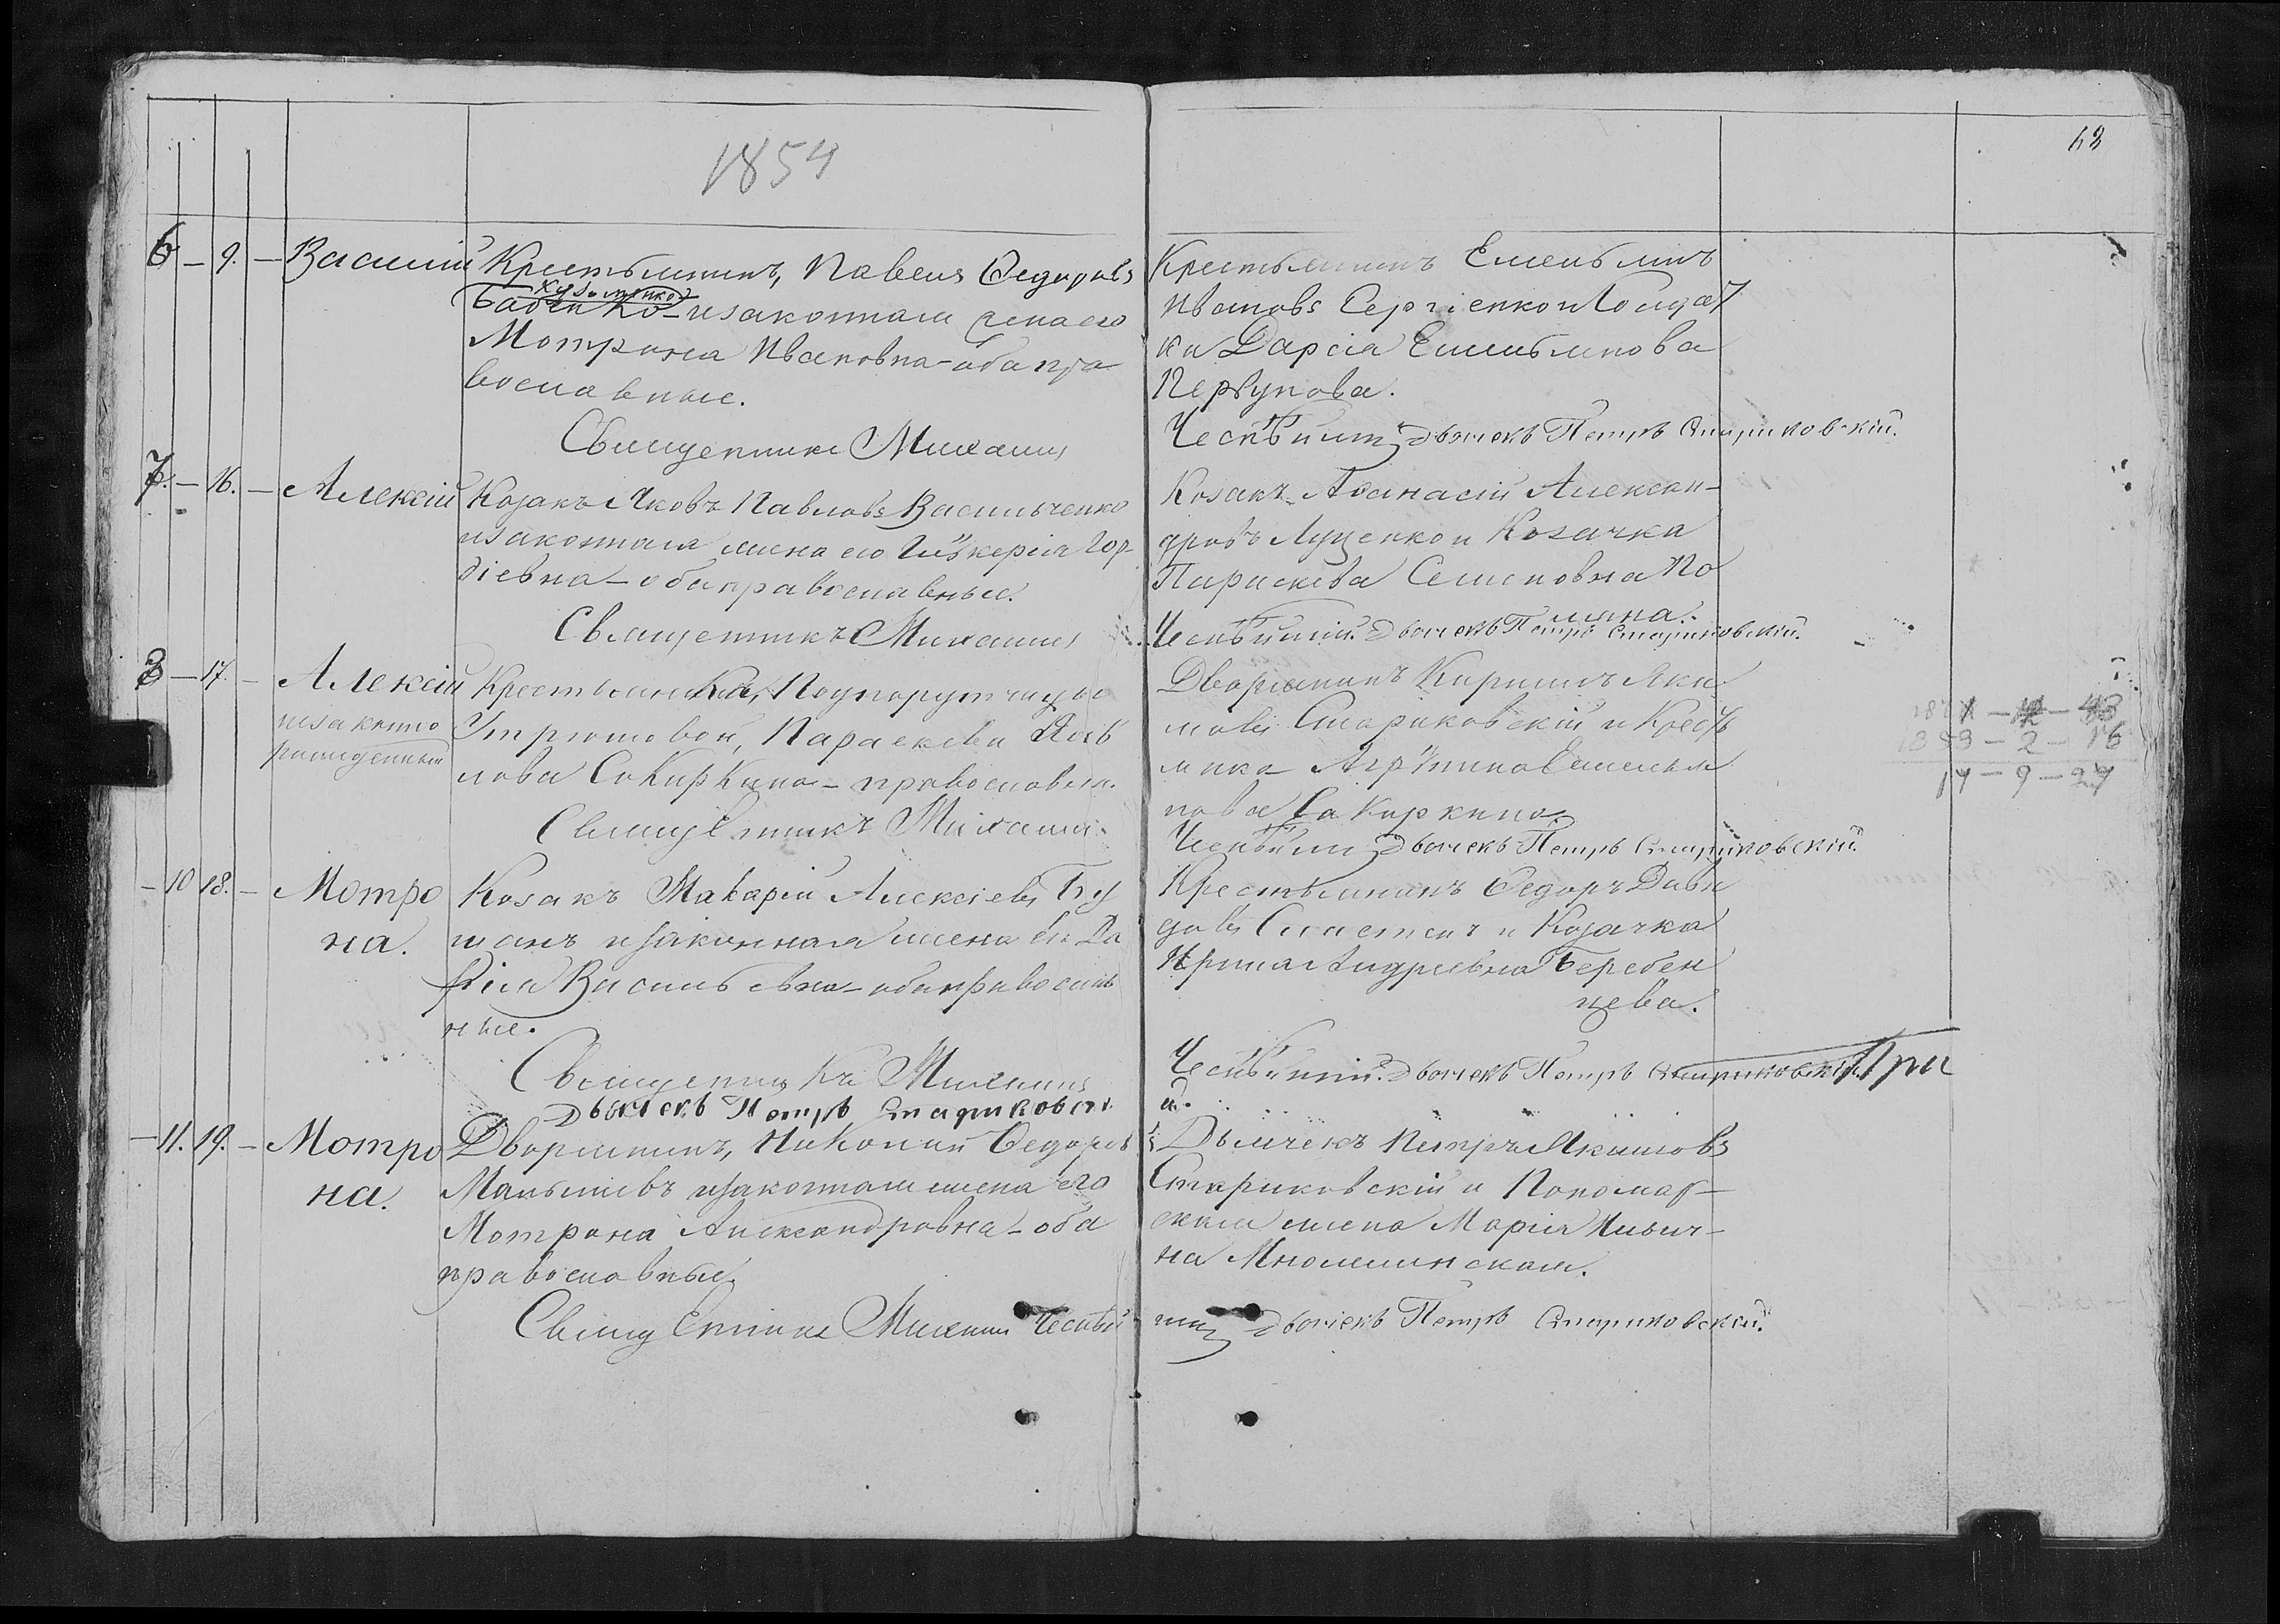 1854
63
6 — 9. — Василій Крестьянинъ, Павелъ Ѳедоровъ
Кузьменко
Бабенко — и законная жена его
Мотрона Ивановна — оба пра
вославные.
Священникъ Михаилъ
Крестьянинъ Емельянъ
Ивановъ Сергіенко и Солдат
ка Дарія Емельянова
Первунова.
Дьячекъ Петръ Стариковскій.
7. — 16. — Алексій Козакъ Яковъ Павловъ Васильченко
и законная жена его Гликерія Гор
діевна — оба православные.
Священникъ Михаилъ
Козакъ Аѳанасій Алексан-
дровъ Луценко и Козачка
Параскева Семеновна По
ляна.
Дьячекъ Петръ Стариковскій.
8 — 17. — Алексій Крестьянка, Подпорутчицы
незаконно
рожденный
Параскева Пав
лова Сокиркина — православн.
Священникъ Михаилъ
Дворянинъ Кирилъ Яки
мовъ Стариковскій и Кресть
янка Агрипина Емелья
нова Сокиркина.
Дьячекъ Петръ Стариковскій.
1871 — 12 — 43
1853 — 2 — 16
17 — 9 — 27
— 10 18. — Мотро
на.
Козакъ Макарій Алексіевъ Бу
шанъ и законная жена его Да
рія Васильевна — оба православ
ные.
Священникъ Михаилъ
Дьячекъ Петръ Стариковскій
Крестьянинъ Ѳедоръ Дави
довъ и Козачка
Ирина Андреевна Беребен
цева.
Дьячекъ Петръ Стариковскій. При
— 11. 19. — Мотро
на.
Дворянинъ, Николай Ѳедоровъ
Малышевъ и законная жена его
Мотрона Александровна — оба
православные.
Священникъ Михаилъ
Дьячекъ Петръ Якимовъ
Стариковскій и Пономар-
ская жена Марія Ильич-
на
Дьячекъ Петръ Стариковскій.